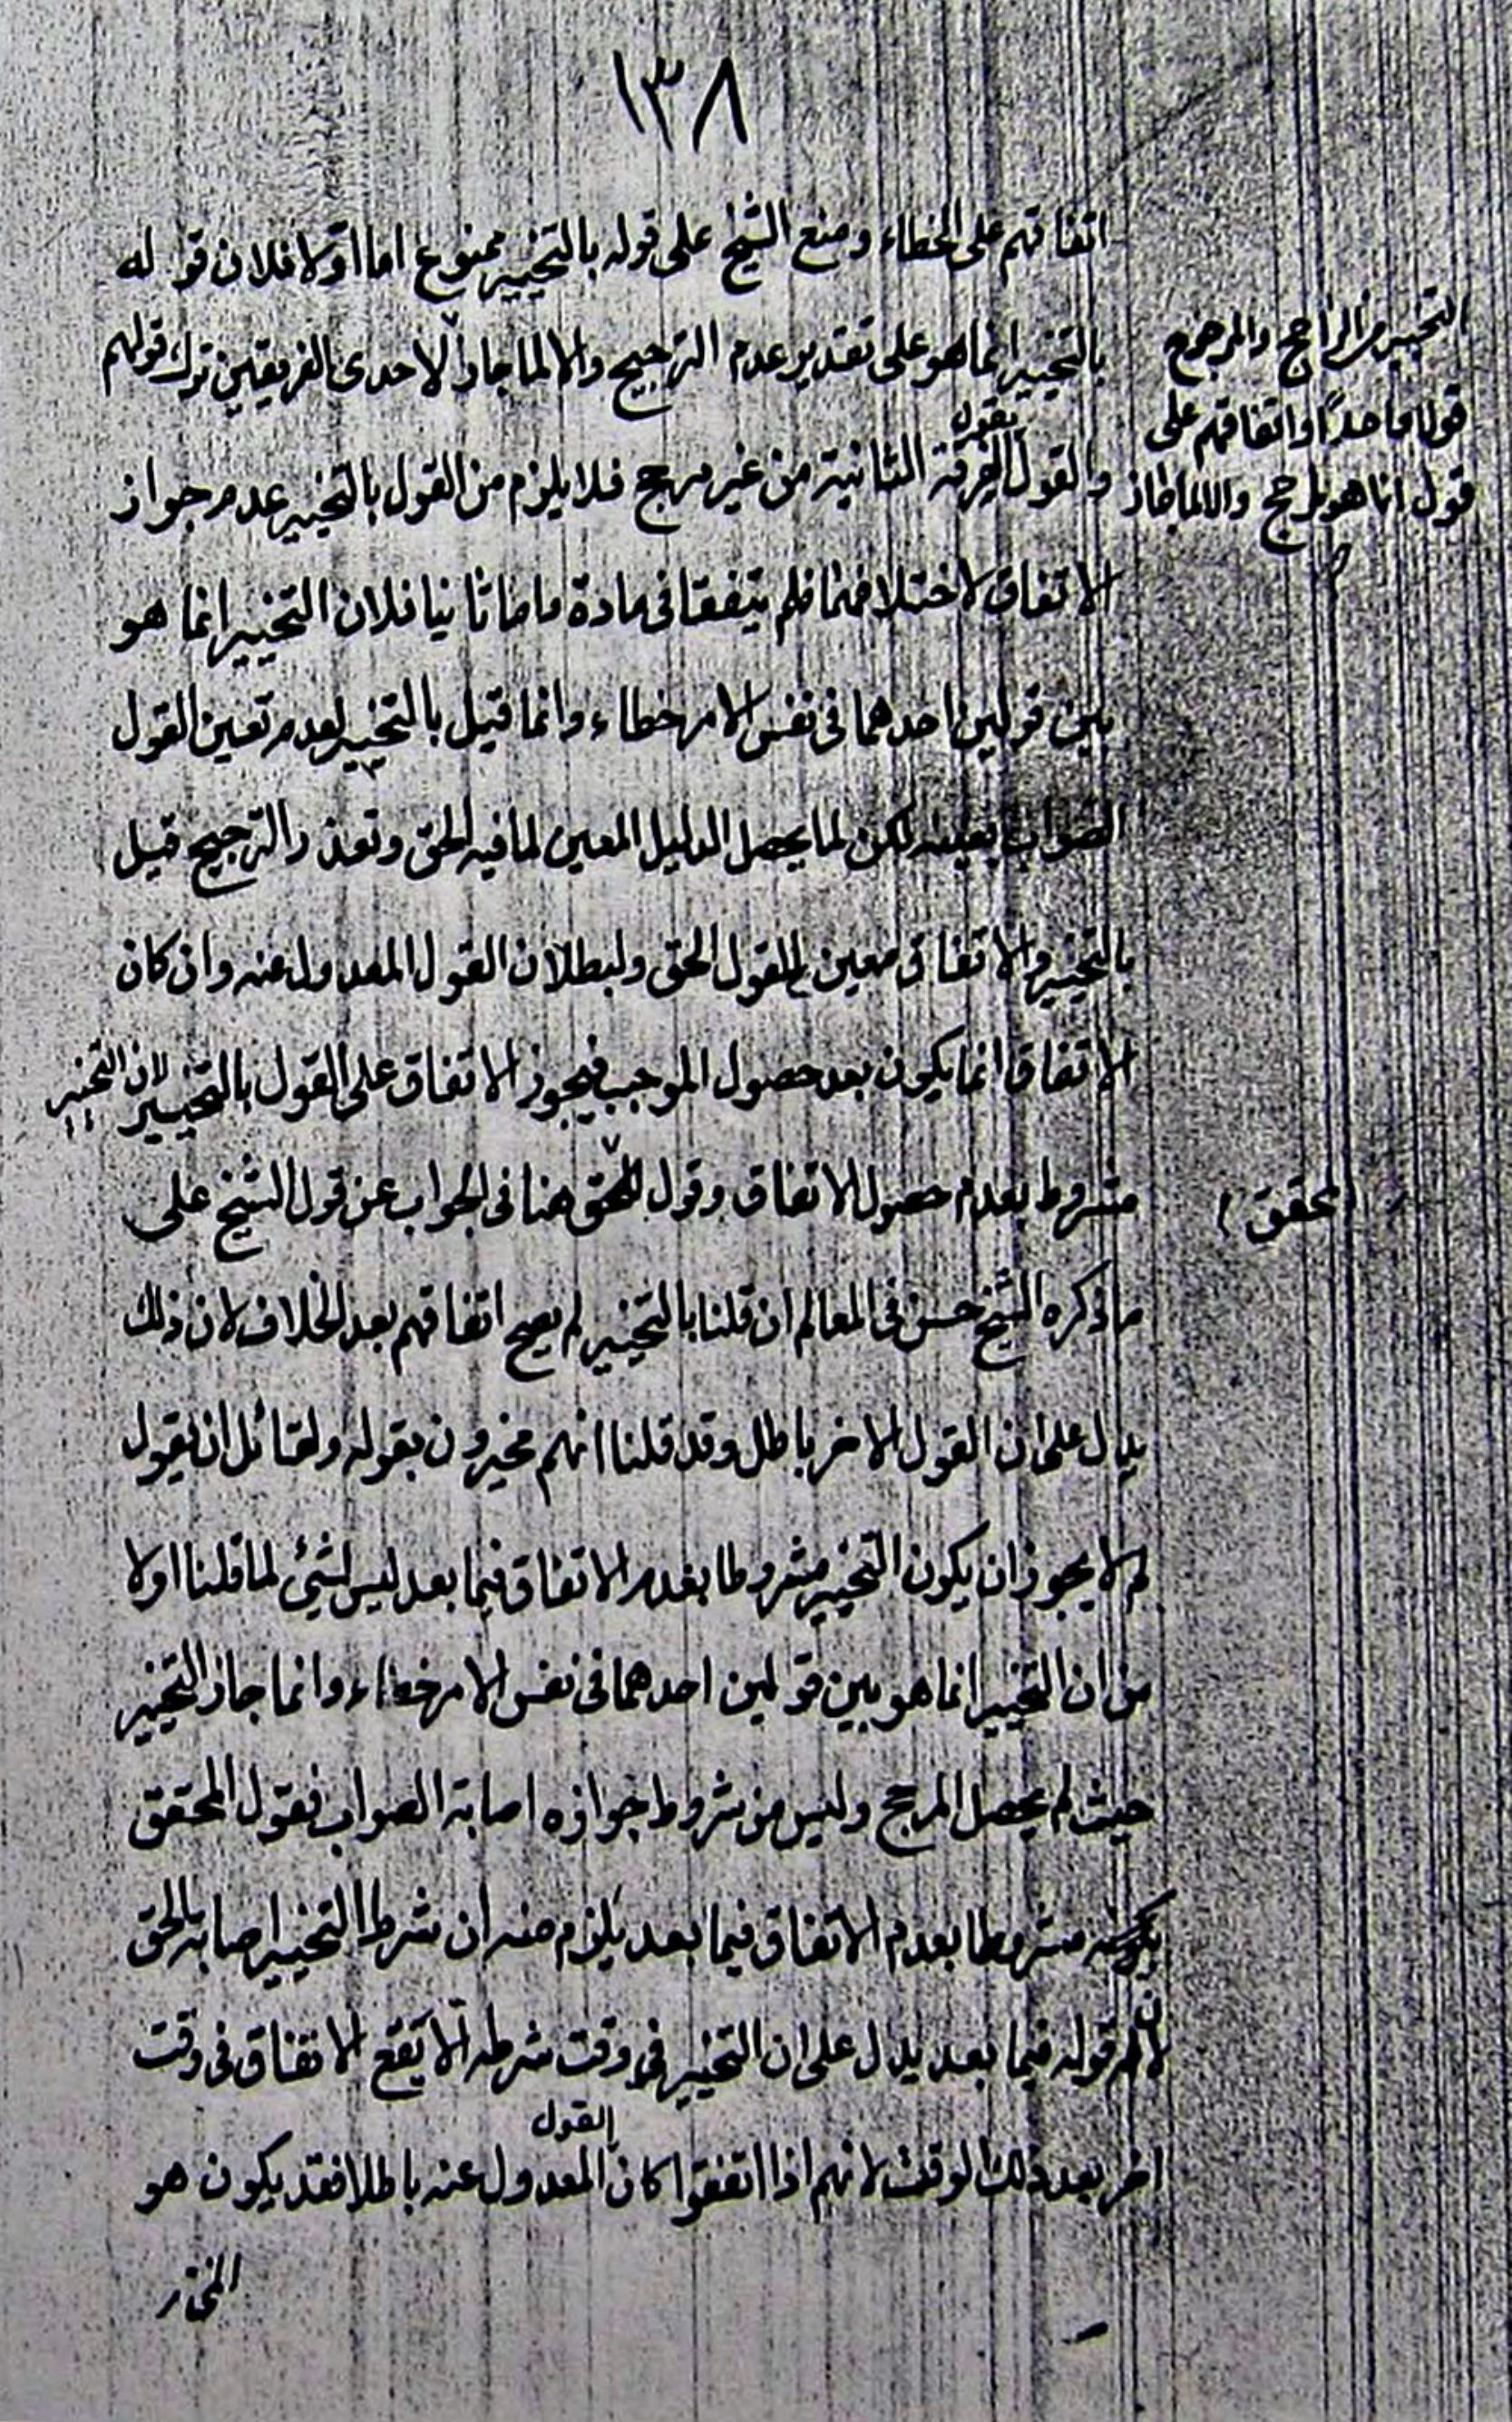 ١٣٨
اتفاقهم على الخطاء ومنع الشيخ على قوله بالتخيير ممنوع اما اولا فلان قوله
بالتخيير انما هو على تقدير عدم الترجيح والا لما جاز لاحدى الفريقين ترك قولهم
والقول بقول الفرقة الثانية من غير مرجح فلا يلزم من القول بالتخيير عدم جواز
الاتفاق لاختلافهما فلم يتفقا فى مادة واما ثانيا فلان التخيير انما هو
بين قولين احدهما فى نفس الامر خطاء وانما قيل بالتخيير لعدم تعين القول
الصواب بعينه لكن لما يحصل الدليل المعين لما فيه الحق وتعذر الترجيح قيل
بالتخيير والاتفاق معين للقول الحق ولبطلان القول المعدول عنه وان كان
الاتفاق انما يكون بعد حصول الموجب فيجوز الاتفاق على القول بالتخيير لان التخيير
مشروط بعدم حصول الاتفاق وقول المحقق هنا فى الجواب عن قول الشيخ على
ما ذكره الشيخ حسن فى المعالم ان قلنا بالتخيير لم يصح اتفاقهم بعد الخلاف لان ذلك
يدل على ان القول الاخر باطل وقد قلنا انهم مخيرون بقوله ولقائل ان يقول
لم لا يجوز ان يكون التخيير مشروطا بعدم الاتفاق فيما بعد ليس بشئ لما قلنا اولا
من ان التخيير انما هو بين قولين احدهما فى نفس الامر خطاء وانما جاز التخيير
حيث لم يحصل المرجح وليس من شروط جوازه اصابة الصواب فقول المحقق
بكونه مشروطا بعدم الاتفاق فيما بعد يلزم منه ان شرط التخيير اصابة الحق
لان قوله فيما بعد يدل على ان التخيير فى وقت شرطه الا يقع الاتفاق فى وقت
اخر بعد ذلك الوقت لانهم اذا اتفقوا كان القول المعدول عنه باطلا فقد يكون هو
التخيير من الراجح والمرجوح
قولا واحدا واتفاقهم على
قول انما هو لمرجح والا لما جاز
(محقق)